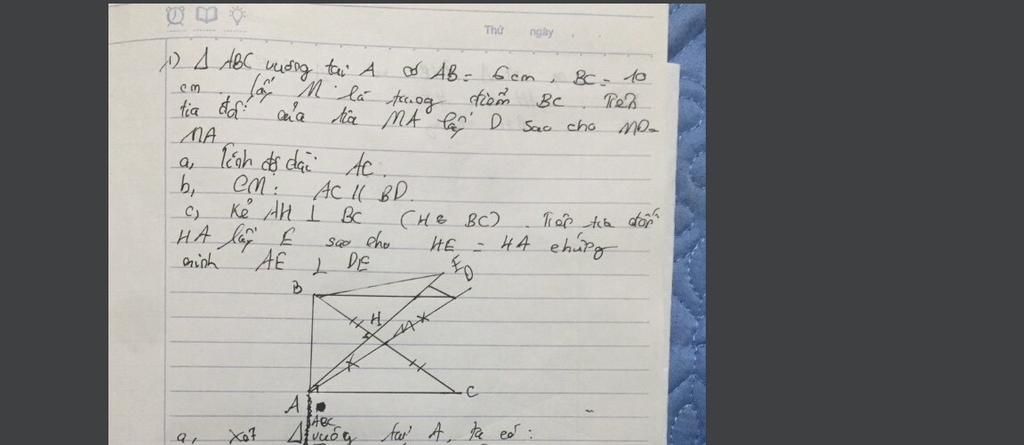 Thứ ngày
1) Δ ABC vuông tại A có AB = 6 cm, BC = 10
cm. lấy M là trung điểm BC. Trên
tia đối của tia MA lấy D sao cho MD=
MA
a, Tính độ dài AC.
b, CM: AC // BD.
c, Kẻ AH ⊥ BC (H ∈ BC). Trên tia đối
HA lấy E sao cho HE = HA chứng
minh AE ⊥ DE
E
D
B
H
M
C
A
ABC
a, Xét Δ vuông tại A, ta có: